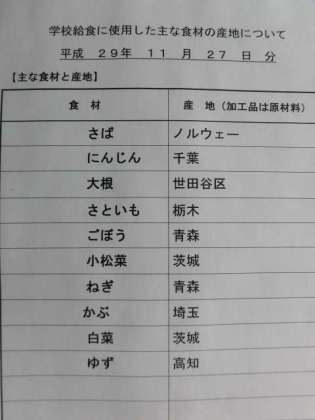 学校給食に使用した主な食材の産地について
平成 29年 11 月 27 日 分
【主な食材と産地】
食 材 産 地（加工品は原材料）
さば ノルウェー
にんじん 千葉
大根 世田谷区
さといも 栃木
ごぼう 青森
小松菜 茨城
ねぎ 青森
かぶ 埼玉
白菜 茨城
ゆず 高知